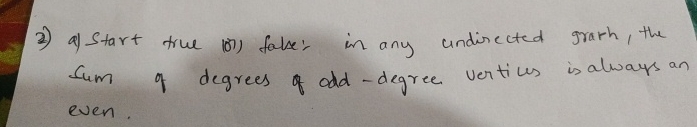 2) a) Start true (or) false:- in any undirected graph, the
sum of degrees of odd-degree vertices is always an
even.